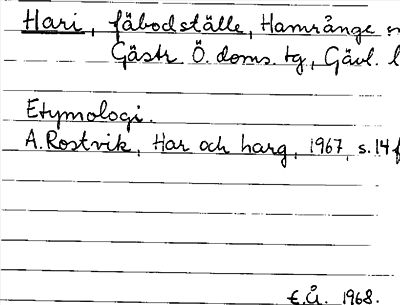 Hari, fäbodställe, Hamrånge
Gästr. Ö. doms. tg, Gävl.
Etymologi.
A. Rostvik, Har och harg, 1967, s. 14 f
E.Å. 1968.